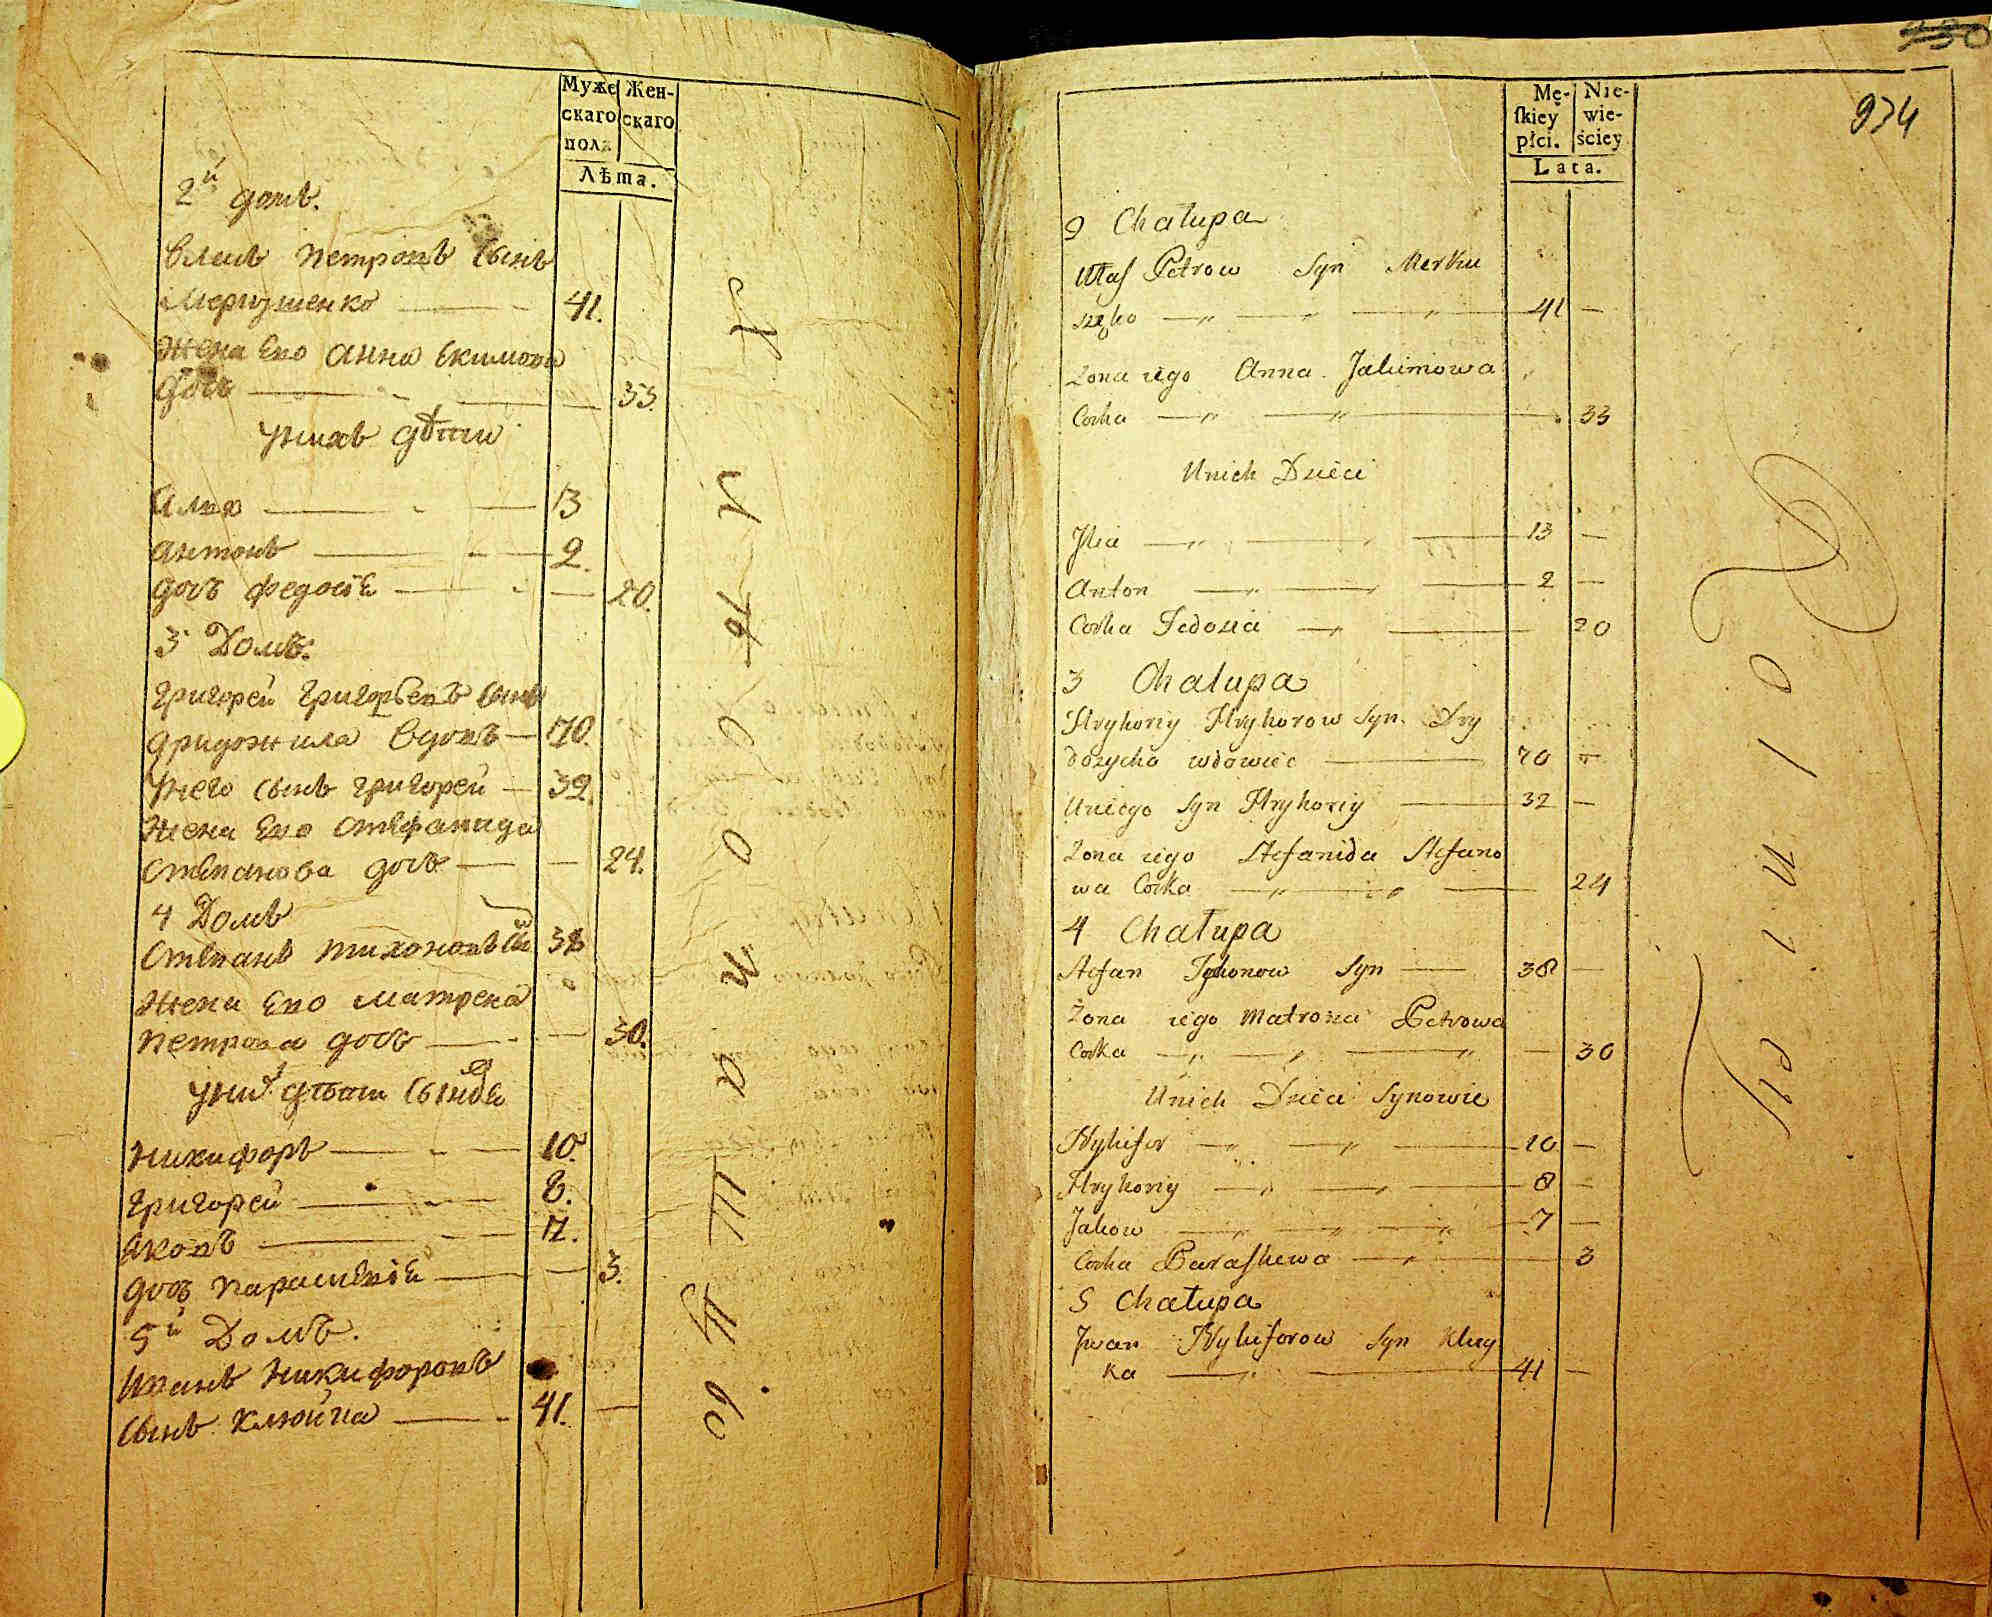 Муже Жен-
скаго скаго
пола
Лѣта.
2й домъ.
Власъ Петровъ сынъ
Меркушенко 41.
Жена Его Анна Екимова
дочь 33.
Унихъ дѣти
Илья 13
Антонъ 2.
дочь Федосiя 20.
3 Домъ.
Григорей Григорьевъ сынъ
вдовъ 70.
Унего сынъ Григорей 32.
Жена Его Стефанида
Степанова дочь 24.
4 Домъ
Степанъ Тихоновъ 38
Жена Его Матрена
Петрова дочь 30.
Уних дѣти сыновья
Никифоръ 10.
Григорей 8.
Яковъ 7.
дочь Параскевiя 3.
5й Домъ.
Иванъ Никифоровъ
сынъ Клюйка 41.
930
934
Mę- Nie-
ſkiey wie-
płci. ściey
Lata.
2 Chałupa
Własſ Petrow Syn Merku
szęko 41
Zona iego Anna Jakimowa
Corka 33
Unich Dzieci
Jlia 13
Anton 2
Corka Fedosia 20
3 Chałupa
Hryhoriy Hryhorow Syn Dry
wdowiec 70
Uniego Syn Hryhoriy 32
Zona iego Stefanida Stefano
wa Corka 24
4 Chałupa
Stefan Tychonow Syn 38
Żona iego Matrona Petrowa
Corka 30
Unich Dzieci Synowie
Nykifor 10
Hryhoriy 8
Jakow 7
Corka Paraſkewa 3
5 Chałupa
Jwan Nykiforow Syn Kluy
ka 41
Rolnicy